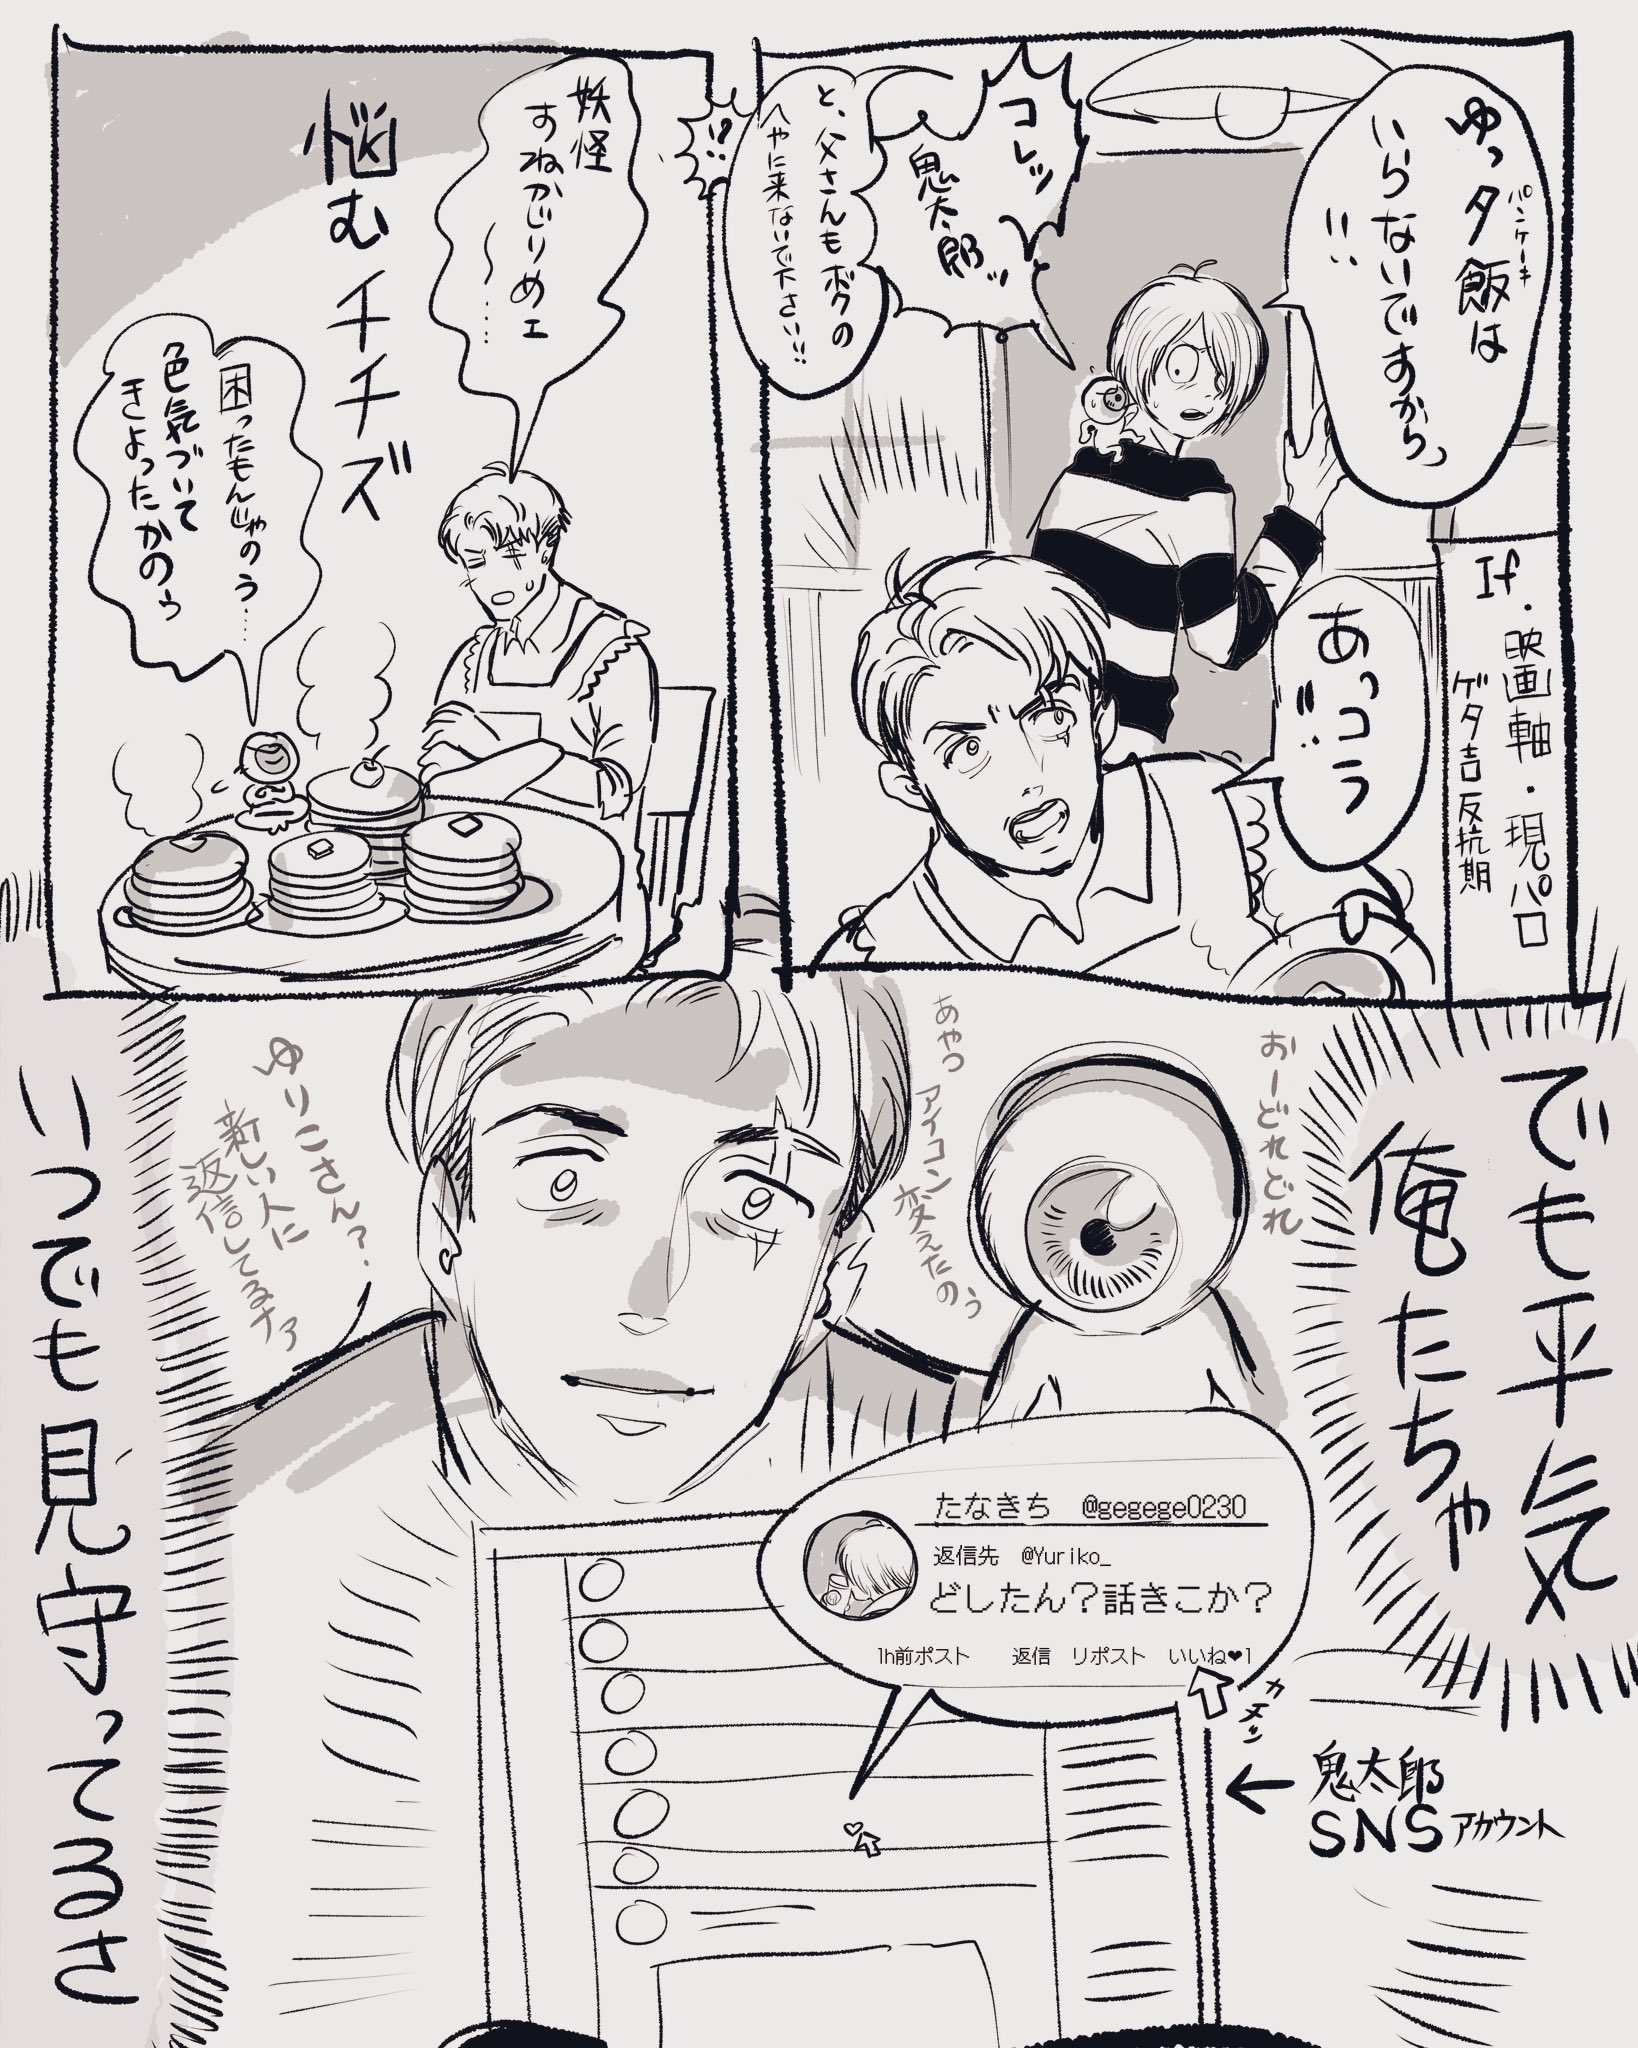 If・映画軸・現パロ
ゲタ吉反抗期
ゆっ夕飯は
パンケーキ
いらないですから、
!!
コレッ
鬼太郎ッ
と、父さんもボクの
へやに来ないで下さい!!
あっコラ
!!
!?
妖怪
すねかじりめェ
〜……
悩むチチズ
困ったもんじゃのう……
色気づいて
きよったかのぅ
でも平気
俺たちゃ
おーどれどれ
あやつ
アイコン
変えたのぅ
ゆりこさん?
新しい人に
返信してるナァ
たなきち @gegege0230
返信先 @Yuriko_
どしたん?話きこか?
1h前ポスト 返信 リポスト いいね❤1
カヌッ
←鬼太郎
SNSアカウント
いつでも見守ってるさ